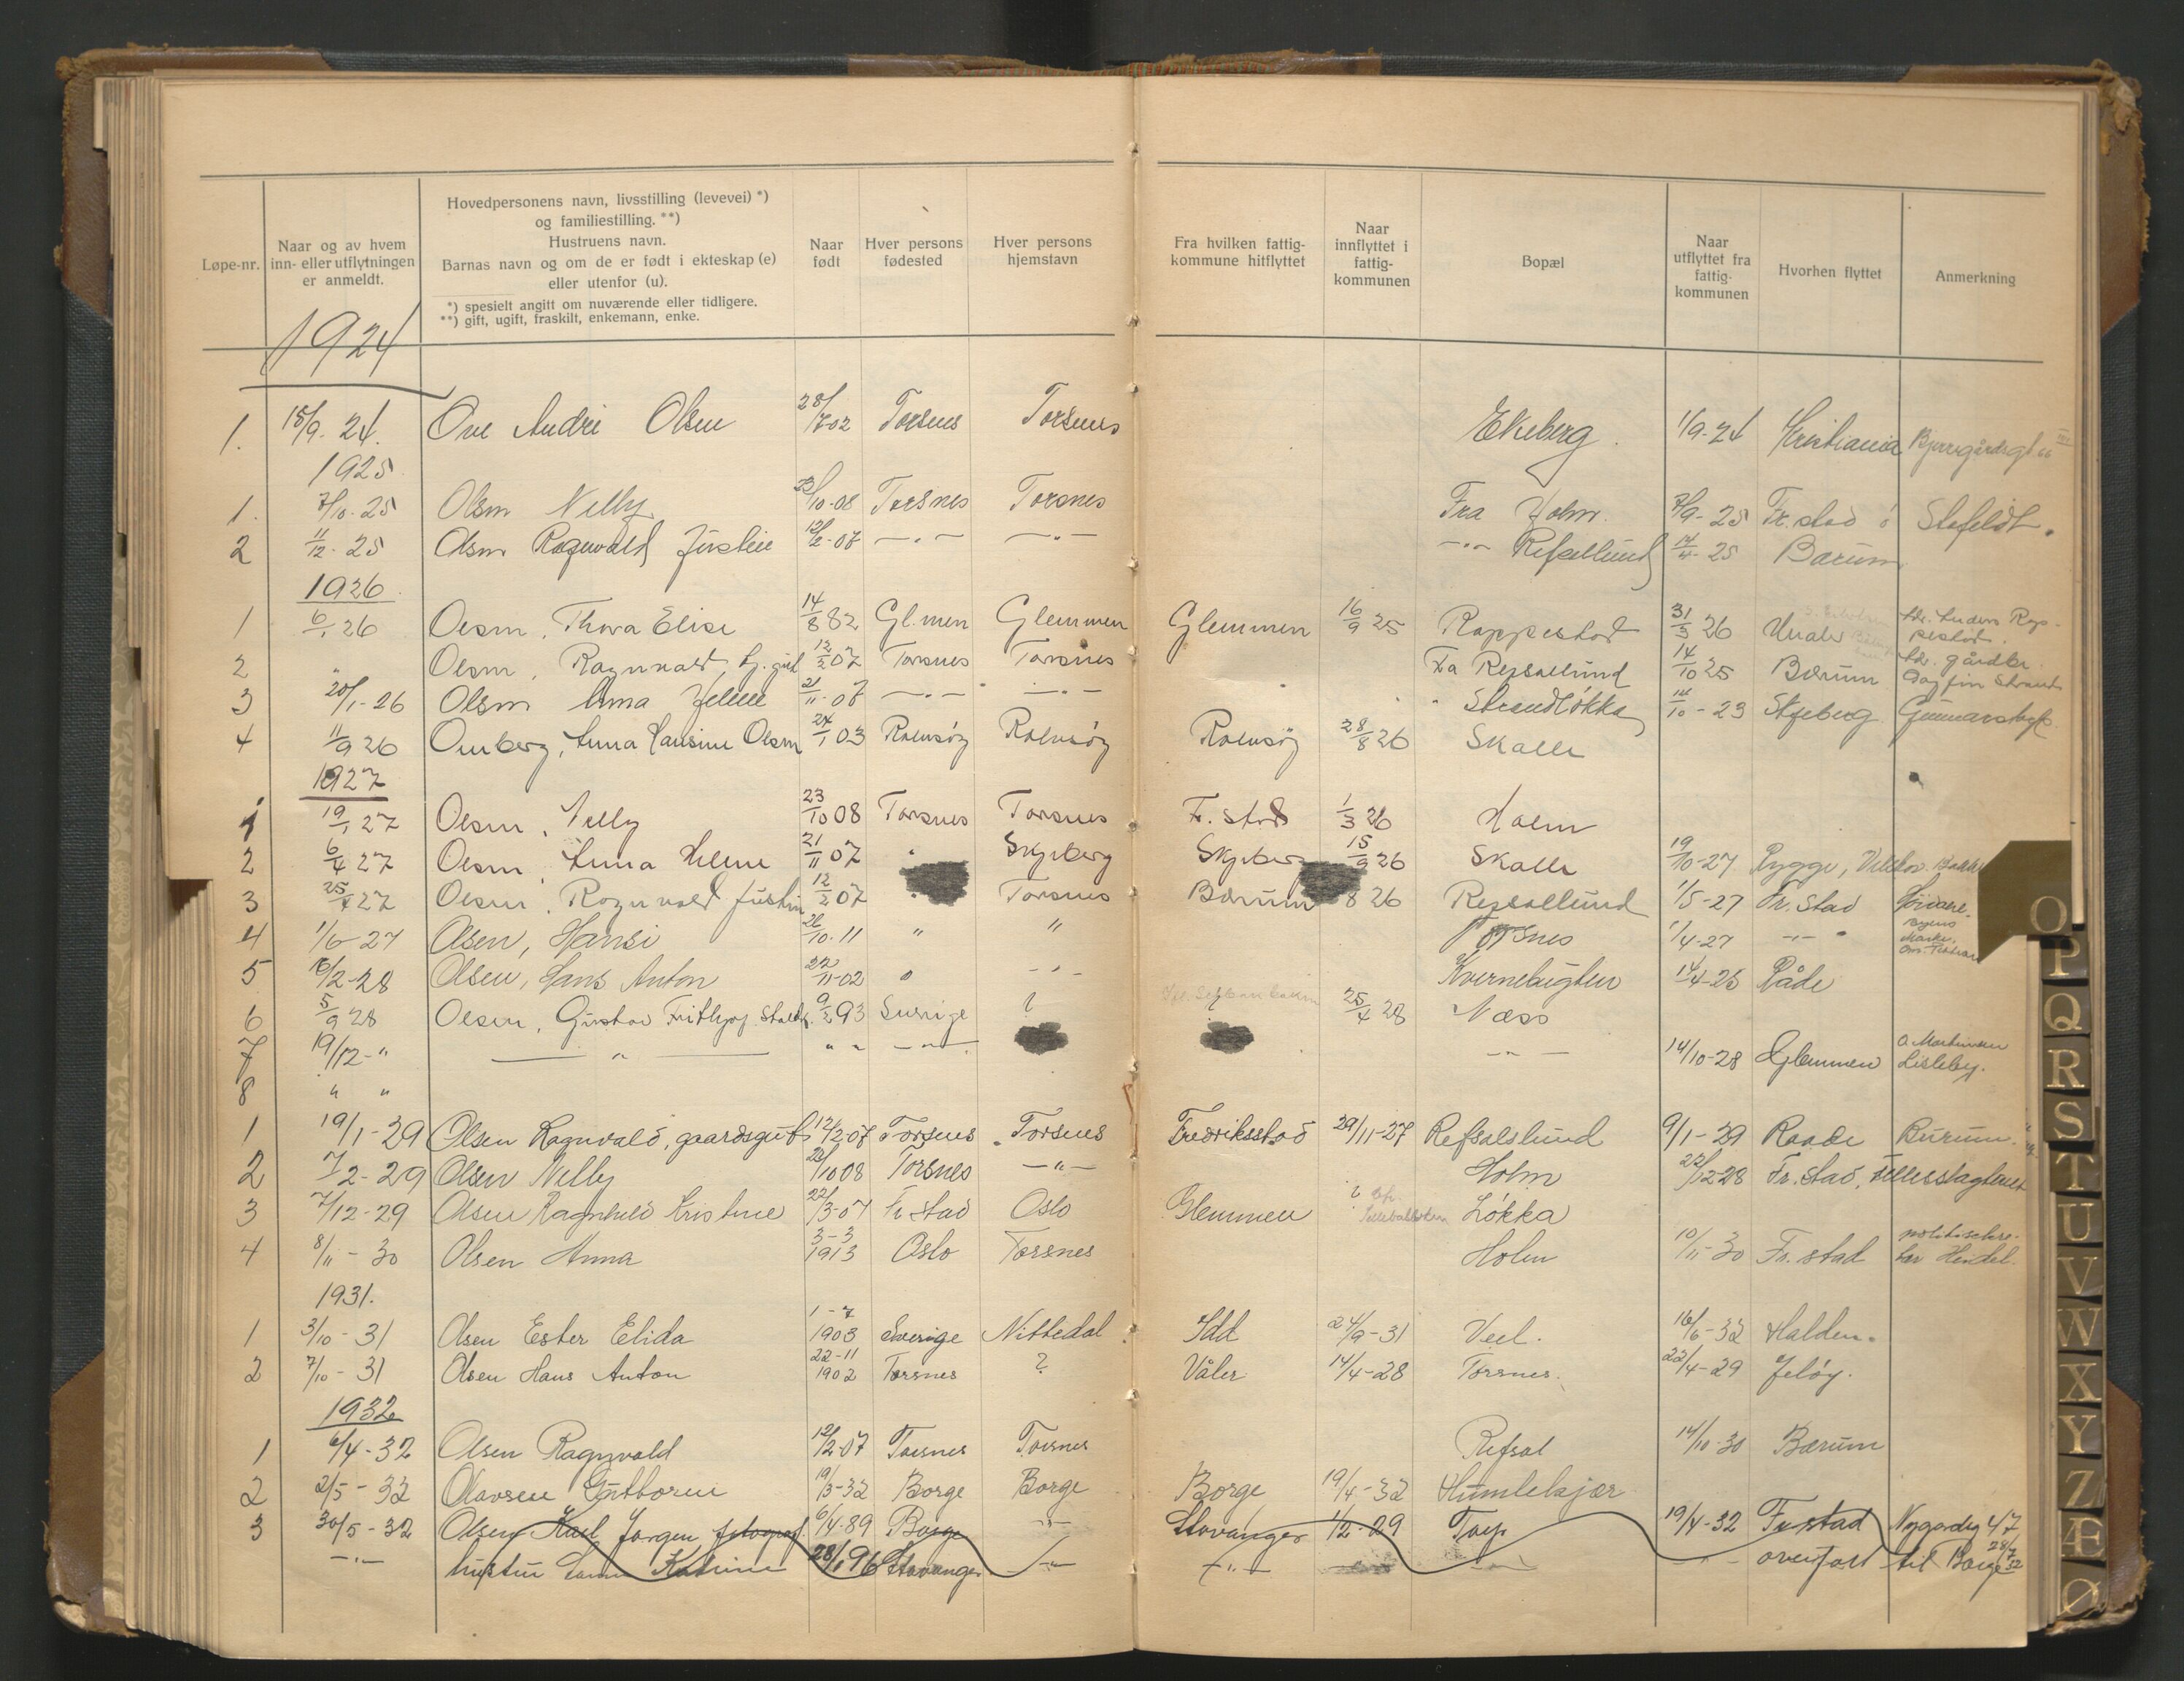 Løpe-nr.
Naar og av hvem
inn- eller utflytningen
er anmeldt.
Hovedpersonens navn, livsstilling (levevei) *)
og familiestilling. **)
Hustruens navn.
Barnas navn og om de er født i ekteskap (e)
eller utenfor (u).
*) spesielt angitt om nuværende eller tidligere.
**) gift, ugift, fraskilt, enkemann, enke.
Naar
født
Hver persons
fødested
Hver persons
hjemstavn
Fra hvilken fattig-
kommune hitflyttet
Naar
innflyttet i
fattig-
kommunen
Bopæl
Naar
utflyttet fra
fattig-
kommunen
Hvorhen flyttet
Anmerkning
1924
1. 15/9. 24. Ove Andre Olsen 28/7 02 Torsnes Torsnes Ekeberg. 1/9-24 Kristiania
1925.
1. 7/10-25 Olsen Nelly 23/10-08 Torsnes Torsnes Fra Holm. 7/9-25 Fr.stad Stafeldt.
2 11/12-25 Olsen Ragnvald Justin 12/2-07 —"— —"— —"— Refsellund 14/4-25 Bærum
1926
1 6/1 26 Olsen, Thora Elise 14/8 82 Gl.men Glemmen Glemmen 16/9 25 Rappestad 31/3 26 Hvaler
2 " Olsen, Ragnvald, Torsnes 12/2 07 Torsnes Fra Repsallund 14/10 25 Bærum hr. gårdbr. Dagfin Strand
3 20/1-26 Olsen Anna Helene 21/11-07 —"— —"— Strandløkka 14/10-23 Skjeberg Gunnarsby
4 11/9 26 Omberg, Anna Hansine Olsen 24/1 03 Rolvsøy Rolvsøy Rolvsøy 28/8 26 Skalle
1927
1 19/1 27 Olsen, Nelly 23/10 08 Torsnes Torsnes Fr. stad 1/3 26 Holm
2 6/4 27 Olsen, Anna Helene 21/11 07 " Skjeberg Skjeberg 15/9 26 Skalle 19/10-27 Rygge,
3 25/4 27 Olsen, Ragnvald Justin 12/2 07 Torsnes Bærum 8 26 Repsallund 1/5-27 Fr. stad
4 1/6-27 Olsen, Hansi 26/10.11 " " Torsnes 1/4-27 —"—
5 16/2-28 Olsen, Hans Anton 22/11-02 " —"— Kvernebugten 14/4-28 Råde
6 5/9 28 Olsen, Gustav Frithjof 9/2 93 Sverige ? ? 25/4 28 Næss
7 19/12-" —"— " " —"— —"— 14/10-28 Glemmen O. Martinsen Lisleby.
8 " "
1 19/1-29 Olsen Ragnvald, gaardsgut 12/2 07 Torsnes Torsnes Fredriksstad 29/11-27 Refsalslund 9/1-29 Raade Burum.
2 7/2-29 Olsen Nelly 23/10 08 Torsnes —"— Holm 22/12-28 Fr. stad, Fellesslagteriet
3 7/12-29 Olsen Ragnhild Kristine 22/3-07 Fr stad Oslo Glemmen ? Løkka
4 8/11-30 Olsen Anna 3-3 1913 Oslo Torsnes Holm 10/11-30 Fr. stad
1931.
1 3/10-31 Olsen Ester Elida 1-7 1903 Sverige Nittedal Idd 24/9-31 Veel. 16/6-32 Halden.
2 7/10-31 Olsen Hans Anton 22-11 1902 Torsnes ? Våler 14/4-28 Torsnes. 22/4-29 Jeløy.
1932
1 6/4-32 Olsen Ragnvald 12/2-07 Torsnes Torsnes Refsal 14/10-30 Bærum
2 2/5-32 Olavsen Guttorm 19/3-32 Borge Borge Borge 19/4-32 Humlekjær
3 30/5-32 Olsen Karl Jørgen fotograf 6/4-89 Borge —"— Stavanger 1/2-29 Torp 19/4-32 Fr stad Nygardsg 47
—"— hustru Katrine 28/1 96 Stavanger —"— —"— overført til Borge 28/7 32
O
P
Q
R
S
T
U
V
W
X
Y
Z
Æ
Ø